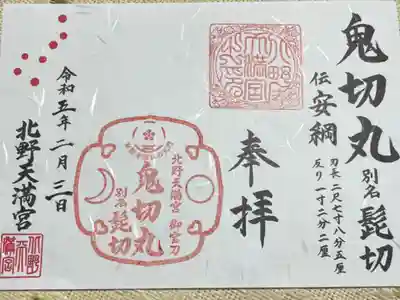 鬼切丸 別名 髭切
伝 安綱
刃長 二尺七寸八分五厘
反り 一寸二分二厘
奉拝
北野天満宮 御宝刀
鬼切丸
別名 髭切
令和五年二月三日
北野天満宮